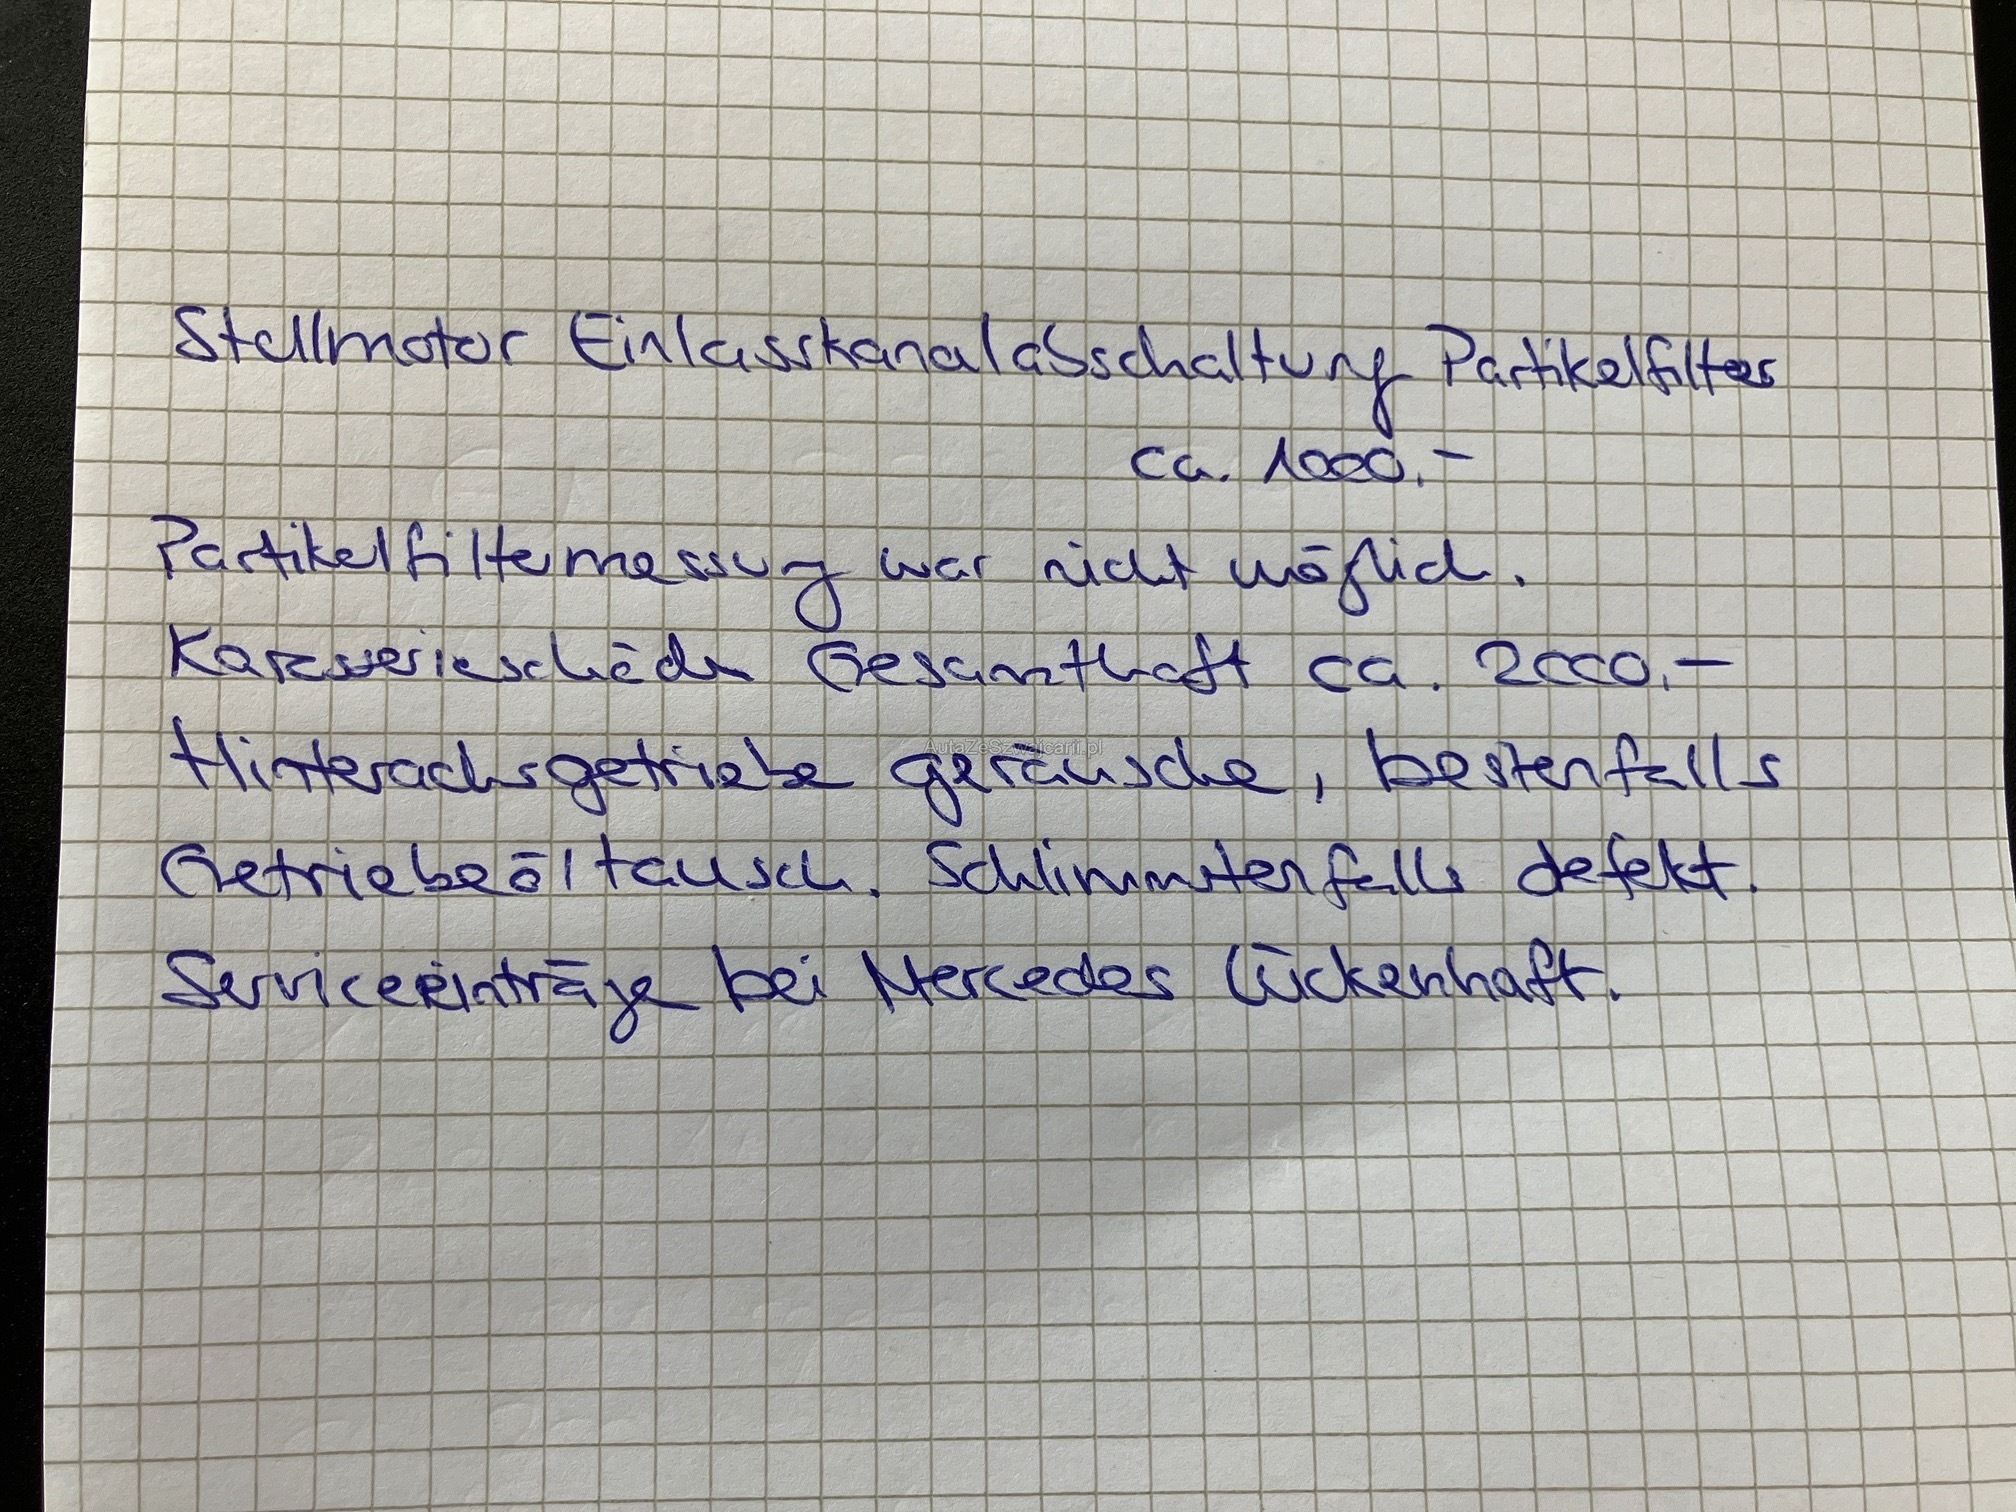 Stellmotor Einlasskanalabschaltung Partikelfilter
ca. 1000.-
Partikelfiltermessung war nicht möglich.
Karosserieschäden Gesamthaft ca. 2000.-
AutaZeSzwajcarii.pl
Hinterachsgetriebe geräusche, bestenfalls
Getriebeöltausch. Schlimmstenfalls defekt.
Serviceeinträge bei Mercedes lückenhaft.